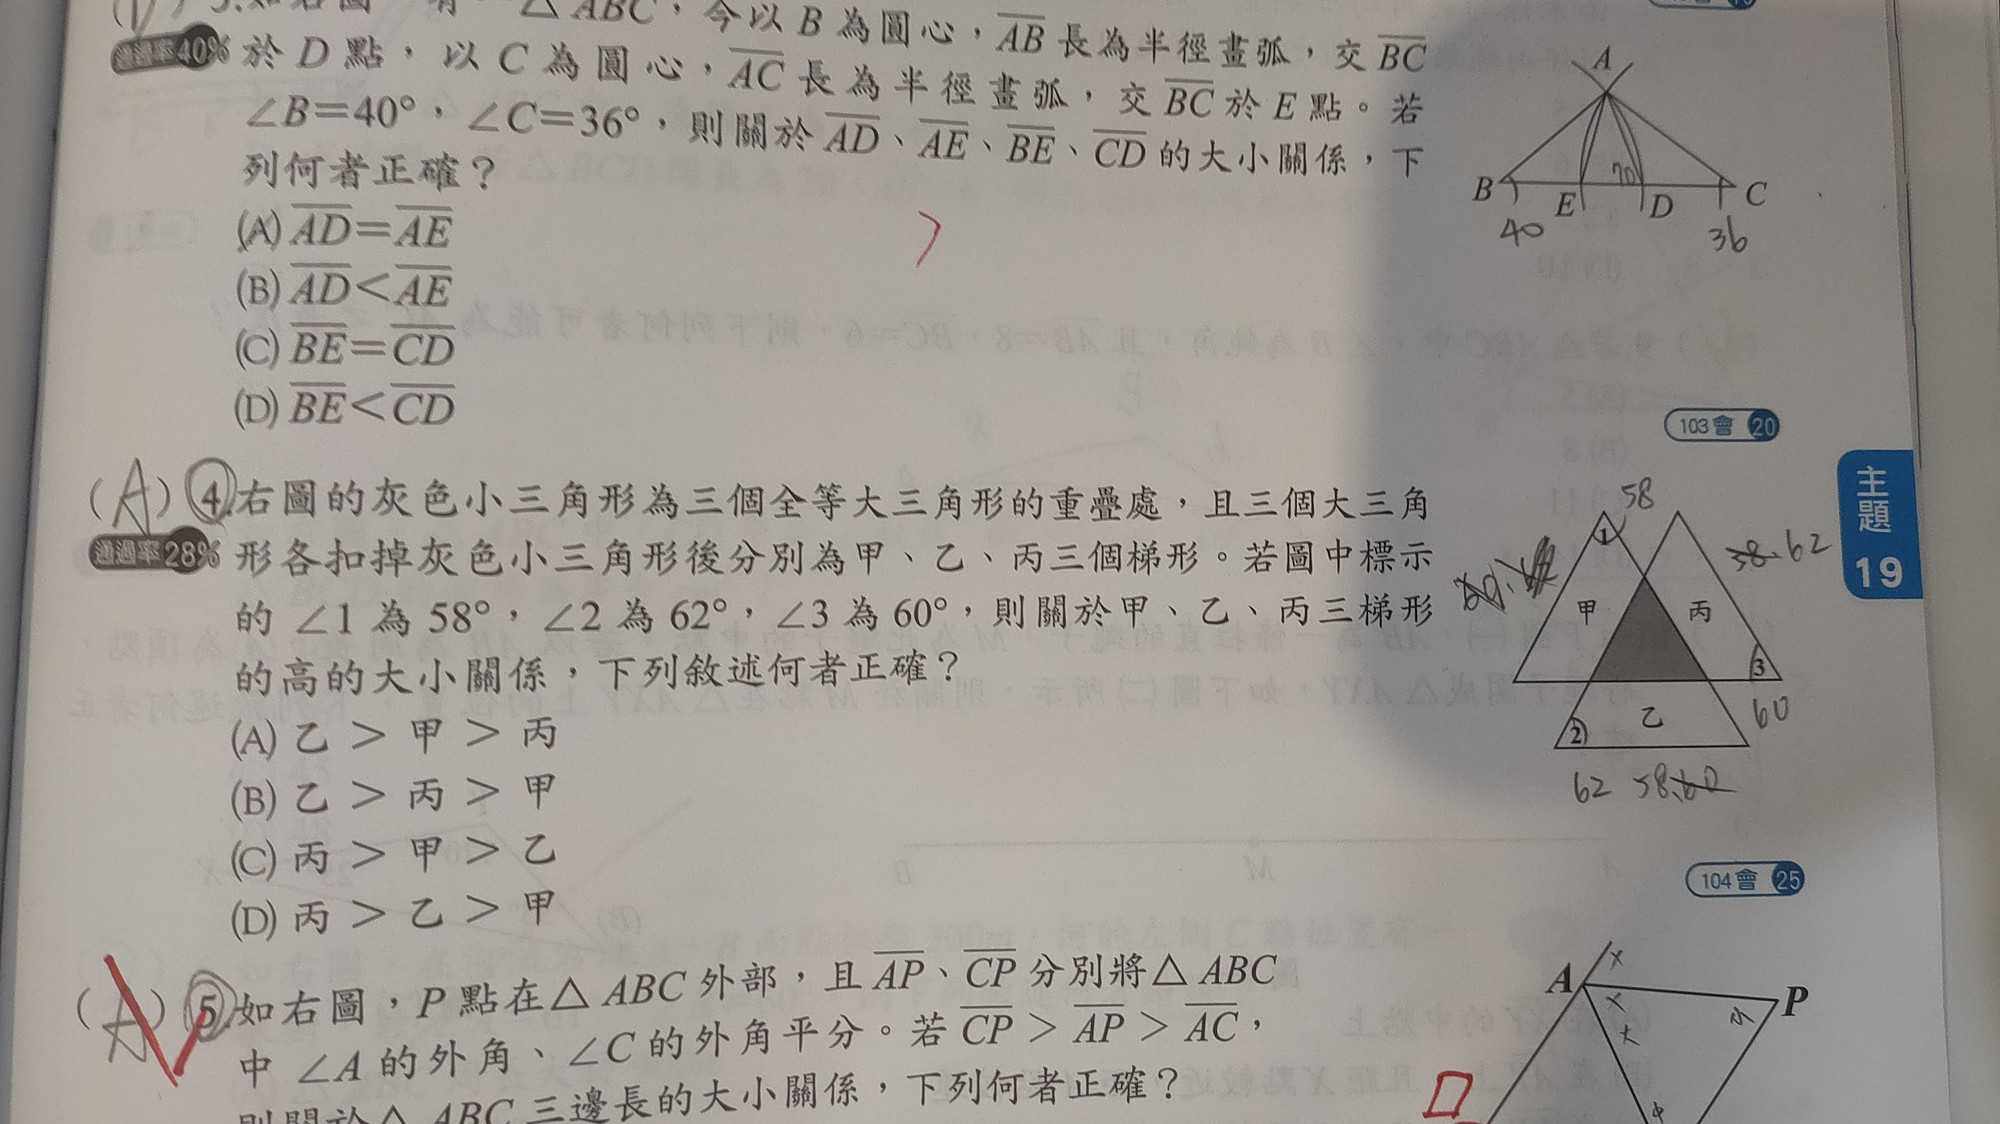 3.如右圖,有一△ABC,今以B為圓心,AB長為半徑畫弧,交BC
通過率40% 於D點,以C為圓心,AC長為半徑畫弧,交BC於E點。若
∠B=40°,∠C=36°,則關於AD、AE、BE、CD的大小關係,下
列何者正確?
(A) AD=AE
(B) AD<AE
(C) BE=CD
(D) BE<CD
A
B E D C
70
40 36
103會 20
(A) 4.右圖的灰色小三角形為三個全等大三角形的重疊處,且三個大三角
通過率28% 形各扣掉灰色小三角形後分別為甲、乙、丙三個梯形。若圖中標示
的∠1為58°,∠2為62°,∠3為60°,則關於甲、乙、丙三梯形
的高的大小關係,下列敘述何者正確?
(A) 乙 > 甲 > 丙
(B) 乙 > 丙 > 甲
(C) 丙 > 甲 > 乙
(D) 丙 > 乙 > 甲
58
1
58.62
甲 丙
3
60
乙
2
62 58.60
主題
19
104會 25
(A) 5.如右圖,P點在△ABC外部,且AP、CP分別將△ABC
中∠A的外角、∠C的外角平分。若CP>AP>AC,
則關於△ABC三邊長的大小關係,下列何者正確?
A P